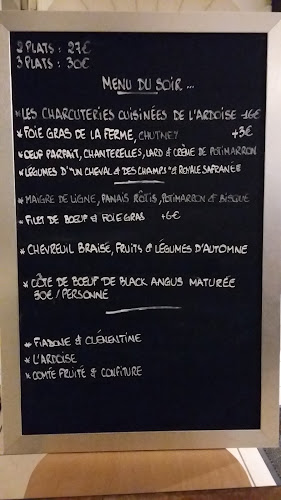 2 PLATS : 27€
3 PLATS : 30€
MENU DU SOIR ...
* LES CHARCUTERIES CUISINÉES DE L'ARDOISE 16€
* FOIE GRAS DE LA FERME, CHUTNEY +3€
* OEUF PARFAIT, CHANTERELLES, LARD & CRÈME DE POTIMARRON
* LÉGUMES D'"UN CHEVAL & DES CHAMPS" & ROYALE SAFRANÉE
* MAIGRE DE LIGNE, PANAIS RÔTIS, POTIMARRON & BISQUE
* FILET DE BOEUF & FOIE GRAS +6€
* CHEVREUIL BRAISÉ, FRUITS & LÉGUMES D'AUTOMNE
* CÔTE DE BOEUF DE BLACK ANGUS MATURÉE
30€ / PERSONNE
* FIADONE & CLÉMENTINE
* L'ARDOISE
* COMTÉ FRUITÉ & CONFITURE